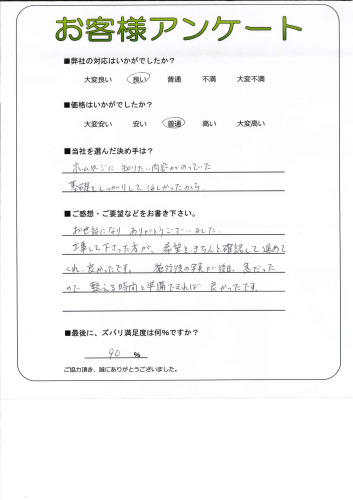 お客様アンケート
■弊社の対応はいかがでしたか?
大変良い 良い 普通 不満 大変不満
■価格はいかがでしたか?
大変安い 安い 普通 高い 大変高い
■当社を選んだ決め手は?
ホームページに 知りたい内容がのっていた
基礎をしっかりして ほしかったから
■ご感想・ご要望などをお書き下さい。
お世話になり ありがとうございました。
工事して下さった方が、希望をきちんと確認して進めて
くれ、良かったです。 施行後の写真が後日、急だった
ので 整える時間と準備できれば 良かったです。
■最後に、ズバリ満足度は何%ですか?
90 %
ご協力頂き、誠にありがとうございました。